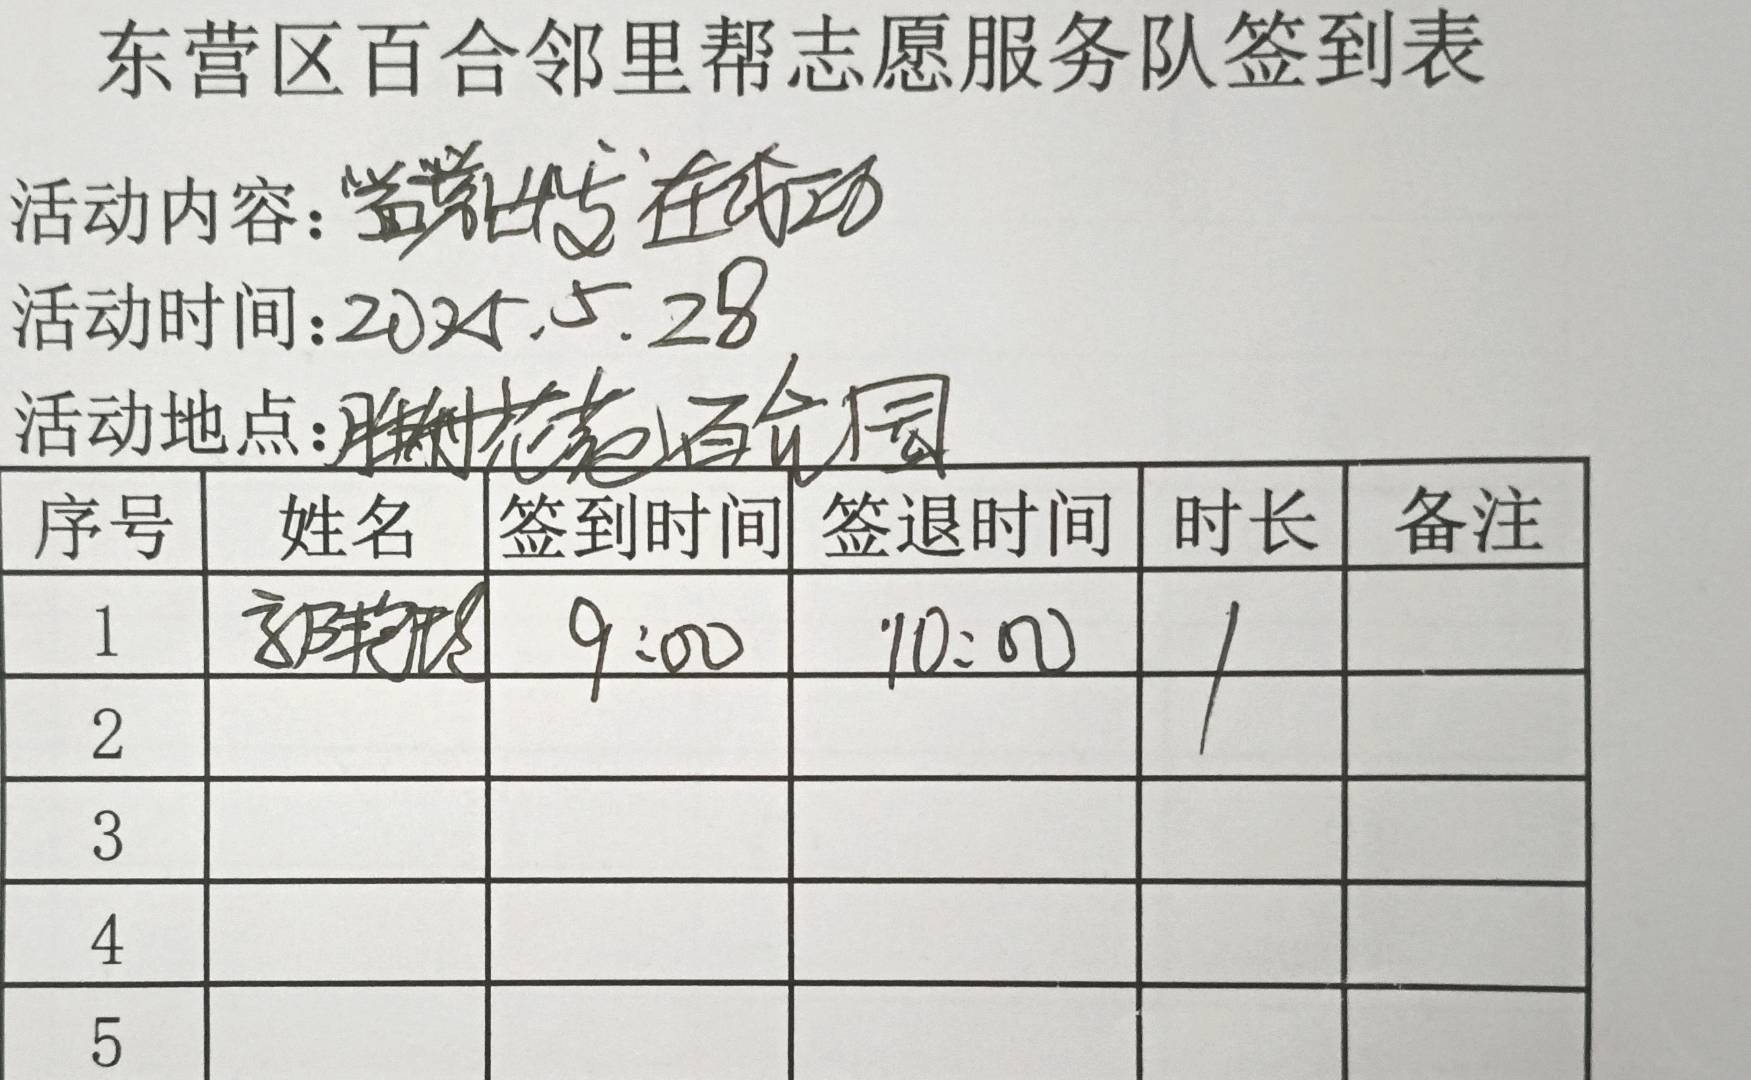 东营区百合邻里帮志愿服务队签到表
活动内容:在行动
活动时间:2025.5.28
活动地点:百合园
序号 姓名 签到时间 签退时间 时长 备注
1 郭艳彩 9:00 10:00 1
2
3
4
5